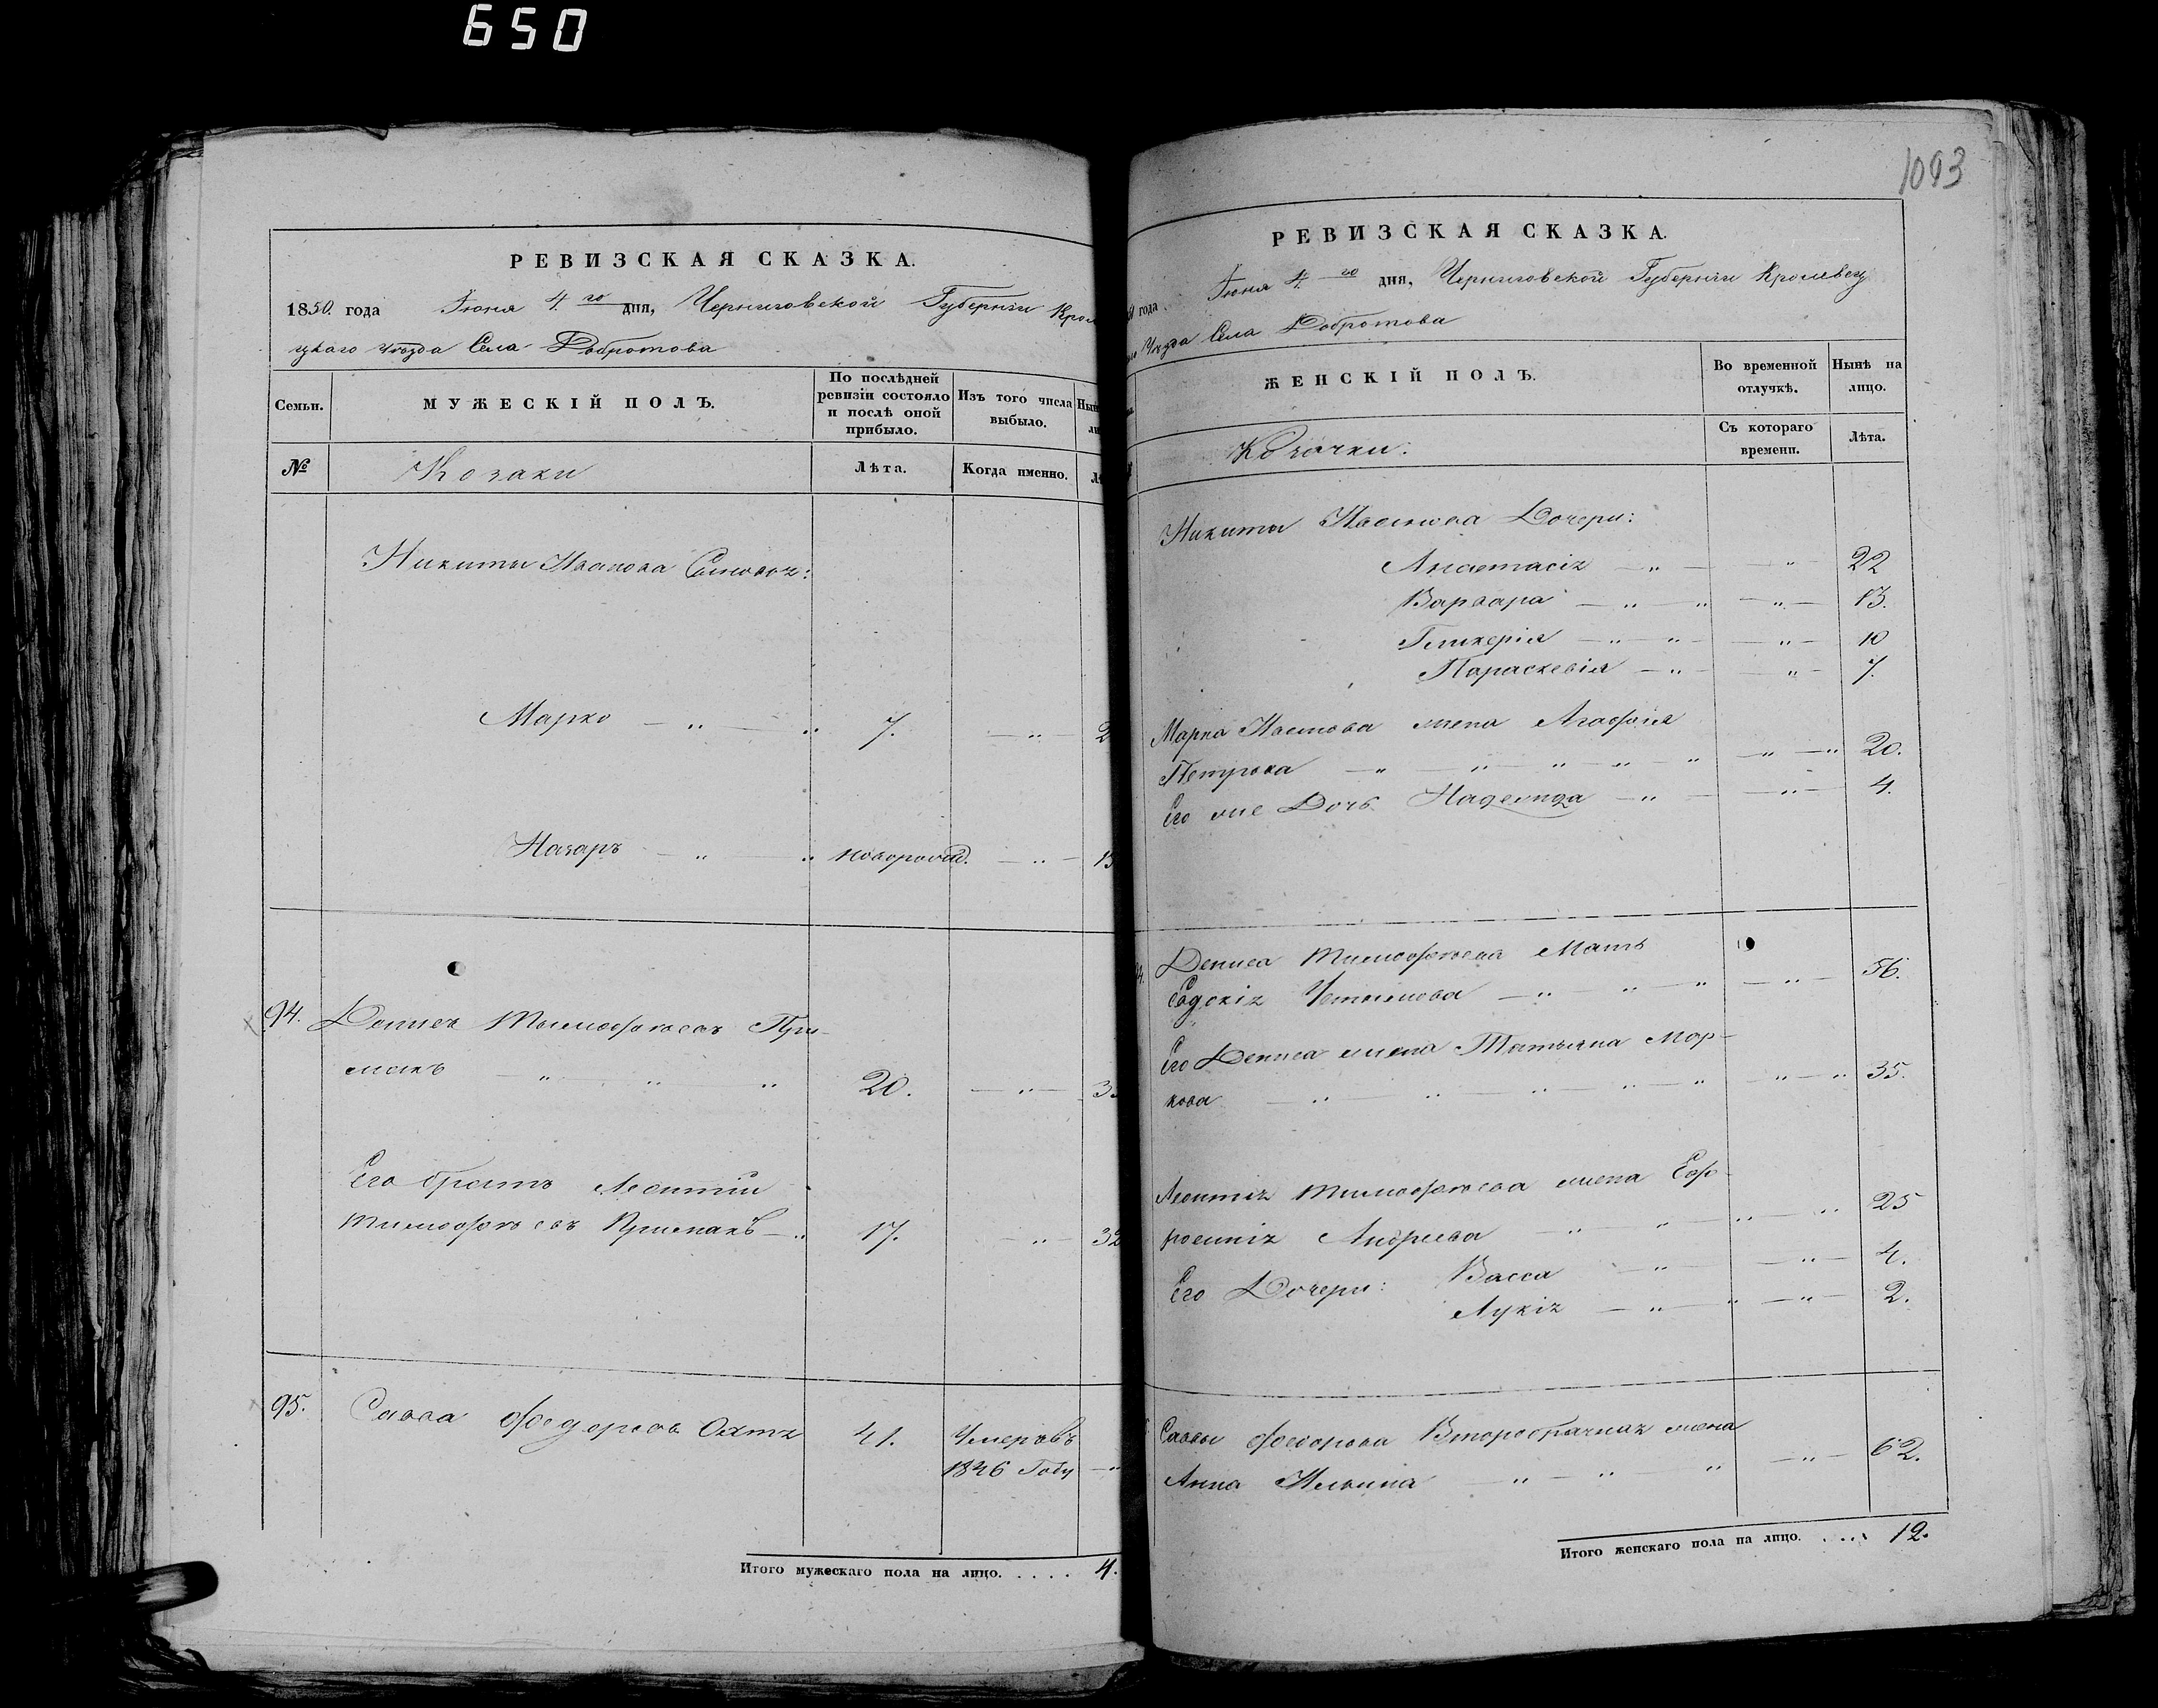 650
РЕВИЗСКАЯ СКАЗКА.
1850. года Іюня 4. го дня, Черниговской Губерніи Крол
ецкаго Уѣзда Села Добротова
Семьи.
МУЖЕСКІЙ ПОЛЪ.
По послѣдней
ревизіи состояло
и послѣ оной
прибыло.
Изъ того числа
выбыло.
№
Козаки
Лѣта.
Когда именно.
Никиты Иванова Сыновья:
Марко — „ — „ 7. — „ — 2
Назаръ — „ — „ новорожд. — „ — 13
94. Денисъ Тимофѣевъ При-
макъ — „ — „ „ 20. — „ — 3
Его братъ Леонтій
Тимофѣевъ Примакъ — „ 17. — „ — 32
95. Савва Федоровъ Охта 41. Умеръ въ
1846 Году — „
Итого мужескаго пола на лицо. . . . . 4.
1093
РЕВИЗСКАЯ СКАЗКА.
года Іюня 4. го дня, Черниговской Губерніи Кролевец
Уѣзда Села Добротова
ЖЕНСКІЙ ПОЛЪ.
Во временной
отлучкѣ.
Нынѣ на
лицо.
Козачки:
Съ котораго
времени.
Лѣта.
Никиты Иванова Дочери:
Анастасія — „ — — „ — 22
Варвара — „ — „ — „ — 13.
Гликерія — „ — „ — — „ — 10
Параскевія — „ — — „ — 7.
Марка Никитова жена Агафія
Петрова — „ — „ — „ — „ — „ — „ — „ 20.
Его же Дочь Надежда — „ — — „ — 4.
Дениса Тимофѣева Мать
Евдокія Устимова — „ — „ — „ — „ — 56.
Его Дениса жена Татьяна Мар-
кова — „ — „ — „ — „ — „ — „ — „ 35.
Леонтія Тимофѣева жена Евф-
росинія Андреева — „ — „ — „ — „ 25
Его Дочери: Васса — „ — „ — 4.
Лукія — „ — „ — „ — 2.
Саввы Федорова Второбрачная жена
Анна Ильина — „ — „ „ — „ — 62.
Итого женскаго пола на лицо. . . . . 12.